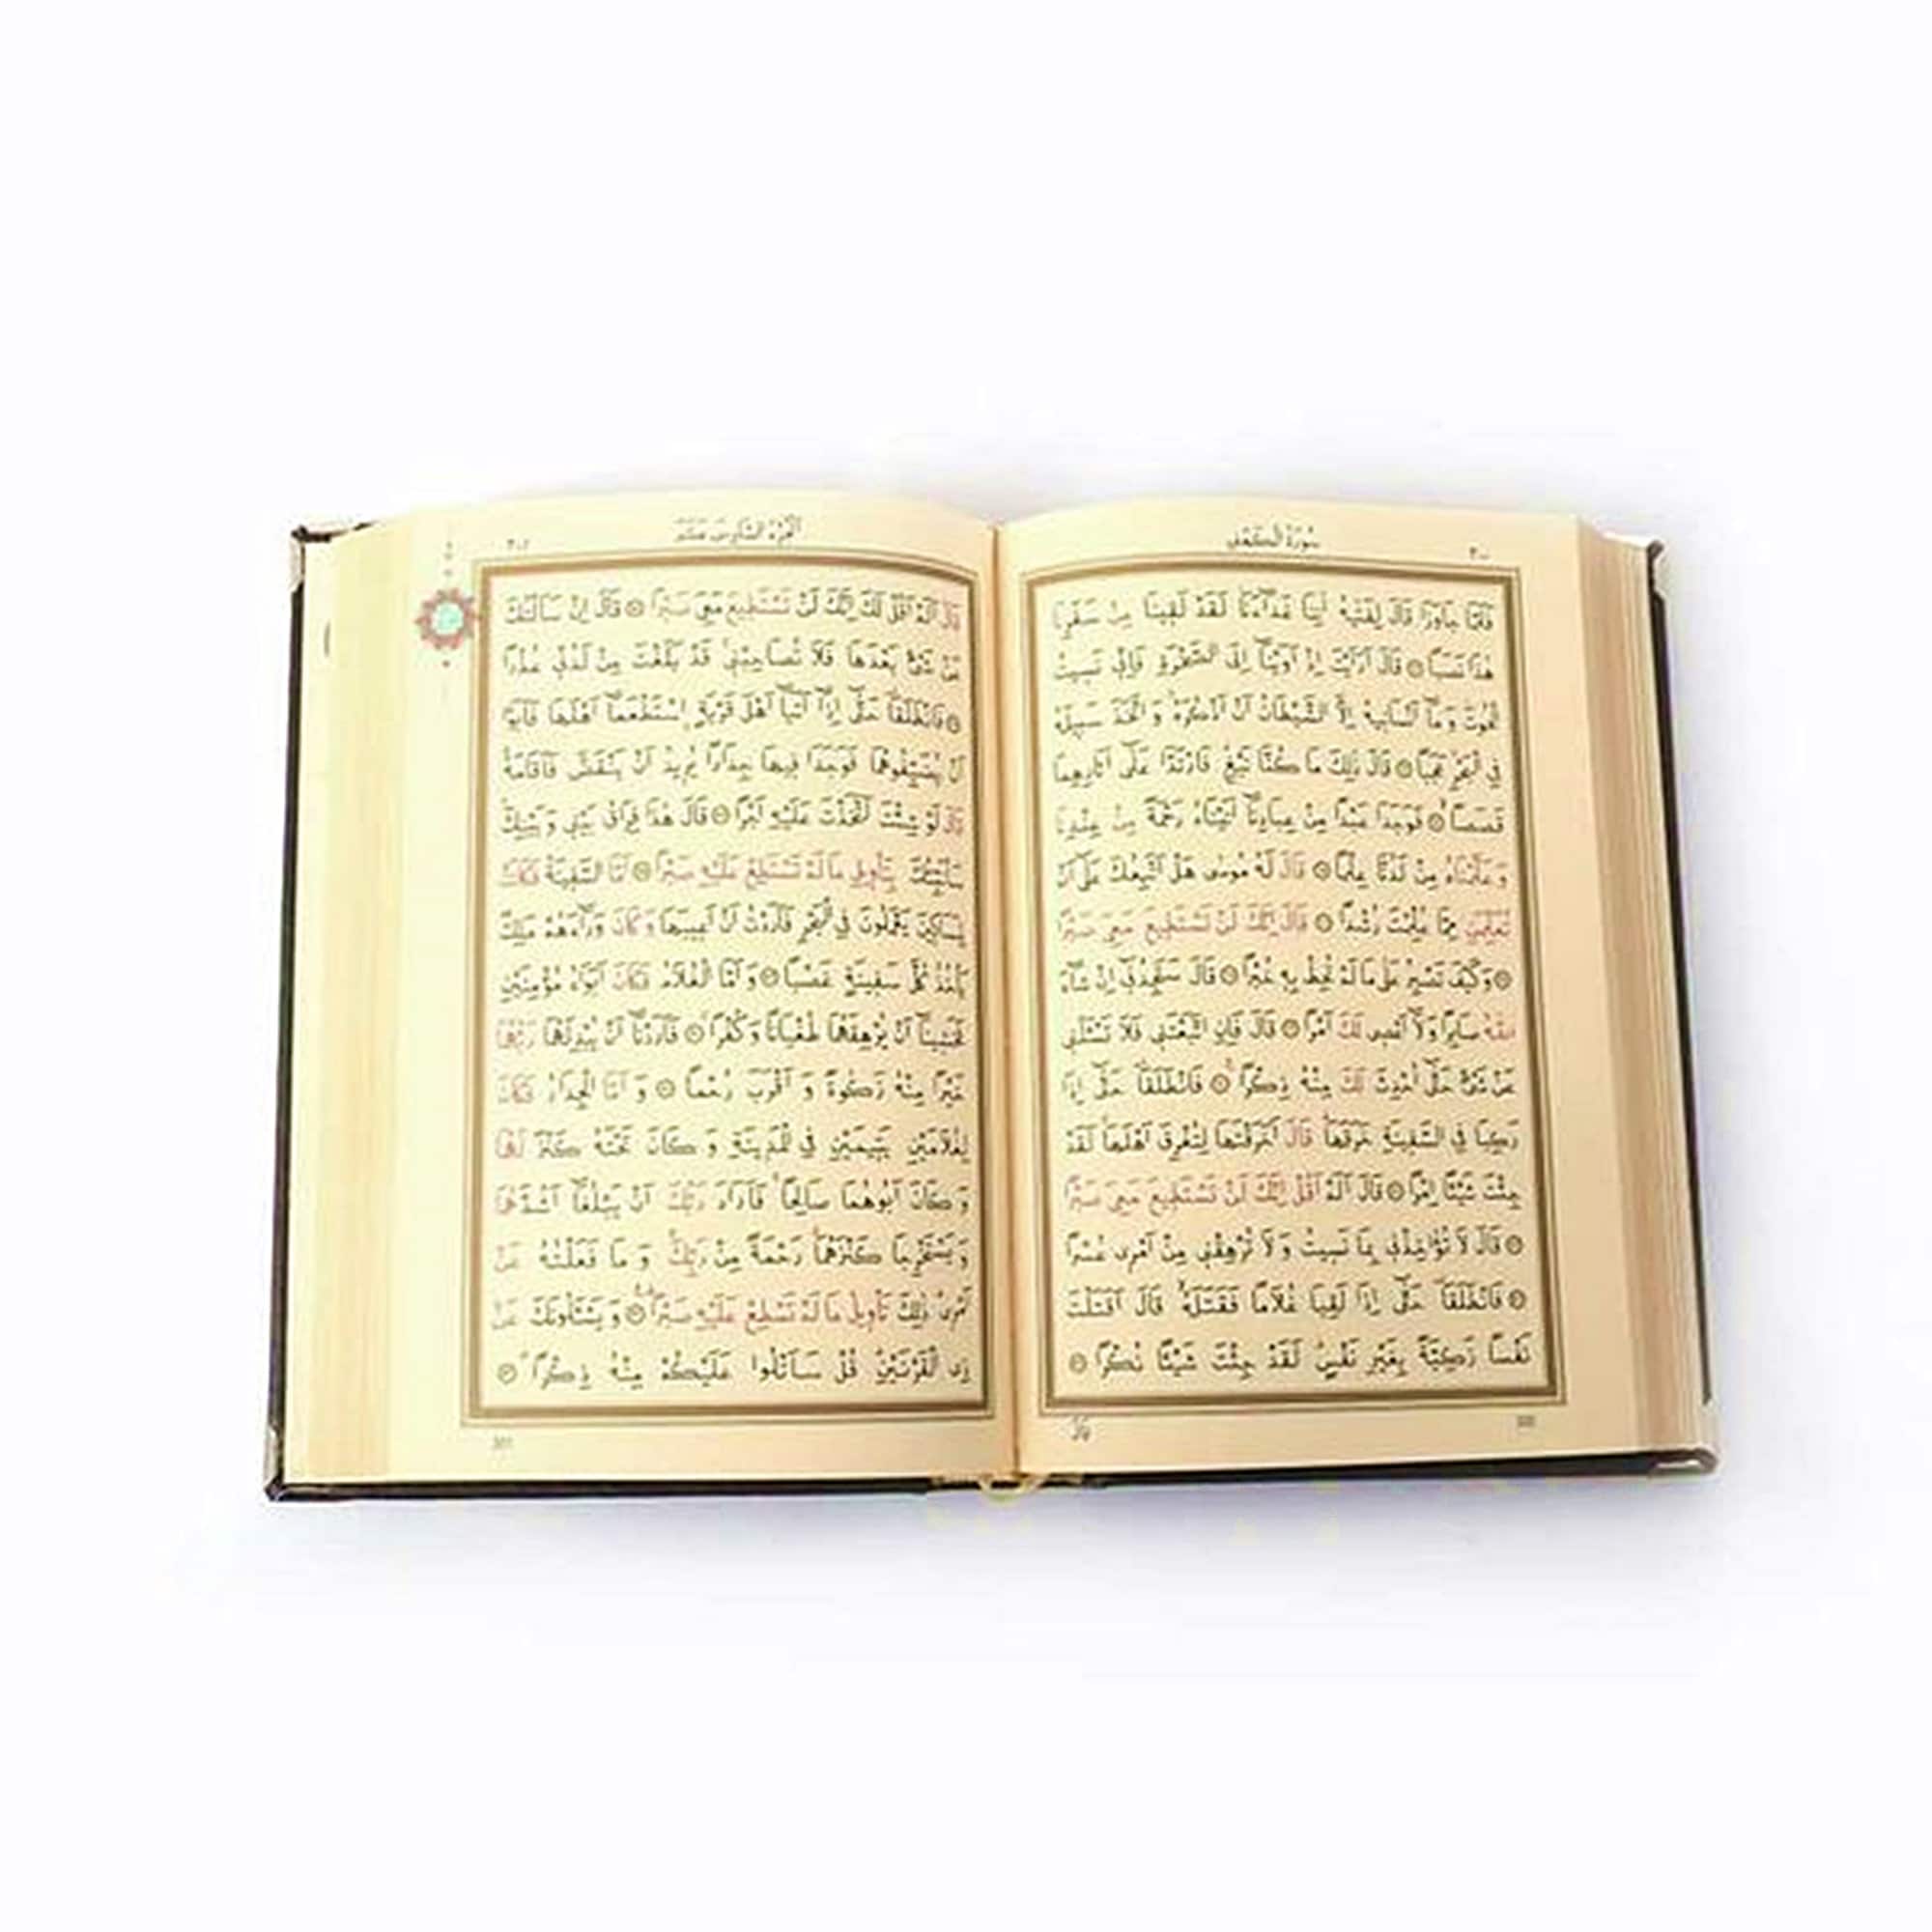 سُورَةُ الْكَهْفِ
٣٠٠
فَلَمَّا جَاوَزَا قَالَ لِفَتٰيهُ اٰتِنَا غَدَٓاءَنَاۘ لَقَدْ لَقٖينَا مِنْ سَفَرِنَا
هٰذَا نَصَبًا قَالَ اَرَاَيْتَ اِذْ اَوَيْنَٓا اِلَى الصَّخْرَةِ فَاِنّٖي نَسٖيتُ
الْحُوتَ وَمَٓا اَنْسَانٖيهُ اِلَّا الشَّيْطَانُ اَنْ اَذْكُرَهُ وَاتَّخَذَ سَبٖيلَهُ
فِي الْبَحْرِ عَجَبًا قَالَ ذٰلِكَ مَا كُنَّا نَبْغِ فَارْتَدَّا عَلٰٓى اٰثَارِهِمَا
قَصَصًا فَوَجَدَا عَبْدًا مِنْ عِبَادِنَٓا اٰتَيْنَاهُ رَحْمَةً مِنْ عِنْدِنَا
وَعَلَّمْنَاهُ مِنْ لَدُنَّا عِلْمًا قَالَ لَهُ مُوسٰى هَلْ اَتَّبِعُكَ عَلٰٓى اَنْ
تُعَلِّمَنِ مِمَّا عُلِّمْتَ رُشْدًا قَالَ اِنَّكَ لَنْ تَسْتَطٖيعَ مَعِيَ صَبْرًا
وَكَيْفَ تَصْبِرُ عَلٰى مَا لَمْ تُحِطْ بِهٖ خُبْرًا قَالَ سَتَجِدُنٖٓي اِنْ شَٓاءَ
اللّٰهُ صَابِرًا وَلَٓا اَعْصٖي لَكَ اَمْرًا قَالَ فَاِنِ اتَّبَعْتَنٖي فَلَا تَسْـَٔلْنٖي
عَنْ شَيْءٍ حَتّٰٓى اُحْدِثَ لَكَ مِنْهُ ذِكْرًا فَانْطَلَقَا حَتّٰٓى اِذَا
رَكِبَا فِي السَّفٖينَةِ خَرَقَهَا قَالَ اَخَرَقْتَهَا لِتُغْرِقَ اَهْلَهَا لَقَدْ
جِئْتَ شَيْـًٔا اِمْرًا قَالَ اَلَمْ اَقُلْ اِنَّكَ لَنْ تَسْتَطٖيعَ مَعِيَ صَبْرًا
قَالَ لَا تُؤَاخِذْنٖي بِمَا نَسٖيتُ وَلَا تُرْهِقْنٖي مِنْ اَمْرٖي عُسْرًا
فَانْطَلَقَا حَتّٰٓى اِذَا لَقِيَا غُلَامًا فَقَتَلَهُ قَالَ اَقَتَلْتَ
نَفْسًا زَكِيَّةً بِغَيْرِ نَفْسٍ لَقَدْ جِئْتَ شَيْـًٔا نُكْرًا
قَالَ
300
اَلْجُزْءُ السَّادِسَ عَشَرَ
٣٠١
قَالَ اَلَمْ اَقُلْ لَكَ اِنَّكَ لَنْ تَسْتَطٖيعَ مَعِيَ صَبْرًا قَالَ اِنْ سَاَلْتُكَ
عَنْ شَيْءٍ بَعْدَهَا فَلَا تُصَاحِبْنٖي قَدْ بَلَغْتَ مِنْ لَدُنّٖي عُذْرًا
فَانْطَلَقَا حَتّٰٓى اِذَٓا اَتَيَٓا اَهْلَ قَرْيَةٍ اِسْتَطْعَمَٓا اَهْلَهَا فَاَبَوْا
اَنْ يُضَيِّفُوهُمَا فَوَجَدَا فٖيهَا جِدَارًا يُرٖيدُ اَنْ يَنْقَضَّ فَاَقَامَهُ
قَالَ لَوْ شِئْتَ لَتَّخَذْتَ عَلَيْهِ اَجْرًا قَالَ هٰذَا فِرَاقُ بَيْنٖي وَبَيْنِكَ
سَاُنَبِّئُكَ بِتَأْوٖيلِ مَا لَمْ تَسْتَطِعْ عَلَيْهِ صَبْرًا اَمَّا السَّفٖينَةُ فَكَانَتْ
لِمَسَاكٖينَ يَعْمَلُونَ فِي الْبَحْرِ فَاَرَدْتُ اَنْ اَعٖيبَهَا وَكَانَ وَرَٓاءَهُمْ مَلِكٌ
يَأْخُذُ كُلَّ سَفٖينَةٍ غَصْبًا وَاَمَّا الْغُلَامُ فَكَانَ اَبَوَاهُ مُؤْمِنَيْنِ
فَخَشٖينَٓا اَنْ يُرْهِقَهُمَا طُغْيَانًا وَكُفْرًا فَاَرَدْنَٓا اَنْ يُبْدِلَهُمَا رَبُّهُمَا
خَيْرًا مِنْهُ زَكٰوةً وَاَقْرَبَ رُحْمًا وَاَمَّا الْجِدَارُ فَكَانَ
لِغُلَامَيْنِ يَتٖيمَيْنِ فِي الْمَدٖينَةِ وَكَانَ تَحْتَهُ كَنْزٌ لَهُمَا
وَكَانَ اَبُوهُمَا صَالِحًا فَاَرَادَ رَبُّكَ اَنْ يَبْلُغَٓا اَشُدَّهُمَا
وَيَسْتَخْرِجَا كَنْزَهُمَا رَحْمَةً مِنْ رَبِّكَ وَمَا فَعَلْتُهُ عَنْ
اَمْرٖي ذٰلِكَ تَأْوٖيلُ مَا لَمْ تَسْطِعْ عَلَيْهِ صَبْرًا وَيَسْـَٔلُونَكَ عَنْ
ذِي الْقَرْنَيْنِ قُلْ سَاَتْلُوا عَلَيْكُمْ مِنْهُ ذِكْرًا
301